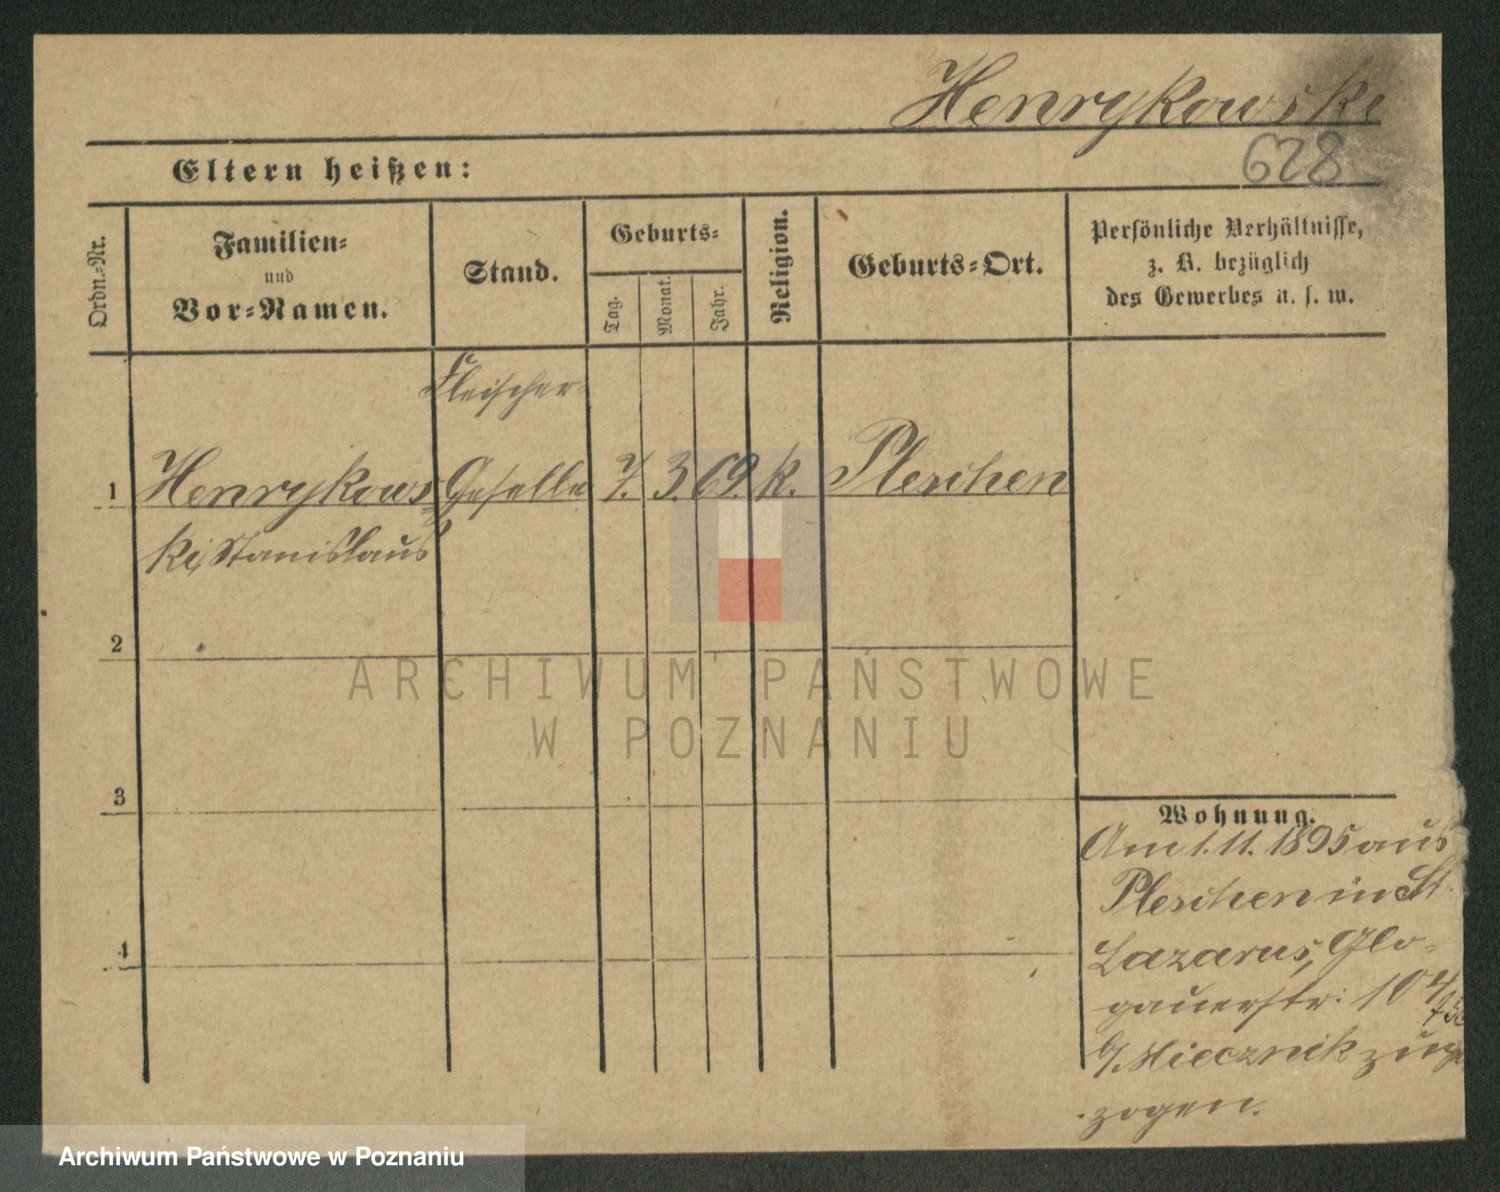 Henrykowski
628
Eltern heißen:
Ordn.-Nr.
Familien-
und
Vor-Namen.
Stand.
Geburts-
Tag.
Monat.
Jahr.
Religion.
Geburts-Ort.
Persönliche Verhältnisse,
z. B. bezüglich
des Gewerbes u. s. w.
Fleischer-
1 Henrykows- Geselle 7. 3. 69. k. Pleschen
ki, Stanislaus
2
ARCHIWUM PAŃSTWOWE
W POZNANIU
3
Wohnung.
Am 1.11.1895 aus
Pleschen in St.
4
Lazarus, Glo-
gauerstr. 10
b/. Miecznik zuge
zogen.
Archiwum Państwowe w Poznaniu